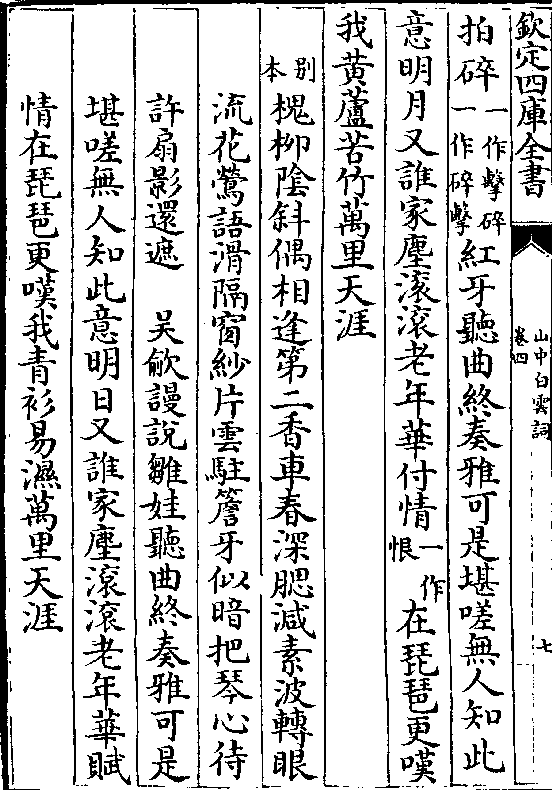 欽定四庫全書
山中白雲詞
卷四
七
拍碎一作擊碎一作碎擊紅牙聽曲終奏雅可是堪嗟無人知此
意明月又誰家塵滾滾老年華付情一作恨在琵琶更嘆
我黃蘆苦竹萬里天涯
別本
槐柳陰斜偶相逢第二香車春深腮減素波轉眼
流花鶯語滑隔窗紗片雲駐簷牙似暗把琴心待
許扇影還遮 吴歈謾說雛娃聽曲終奏雅可是
堪嗟無人知此意明日又誰家塵滾滾老年華賦
情在琵琶更嘆我青衫易濕萬里天涯